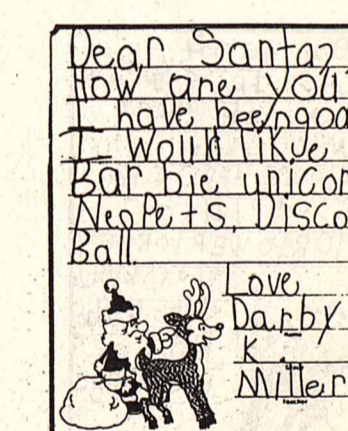 Dear Santa,
How are you?
I have been goo
I would like
Barbie unicor
NeoPets, Disco
Ball.
Love
Darby
name
K.
Miller
teacher